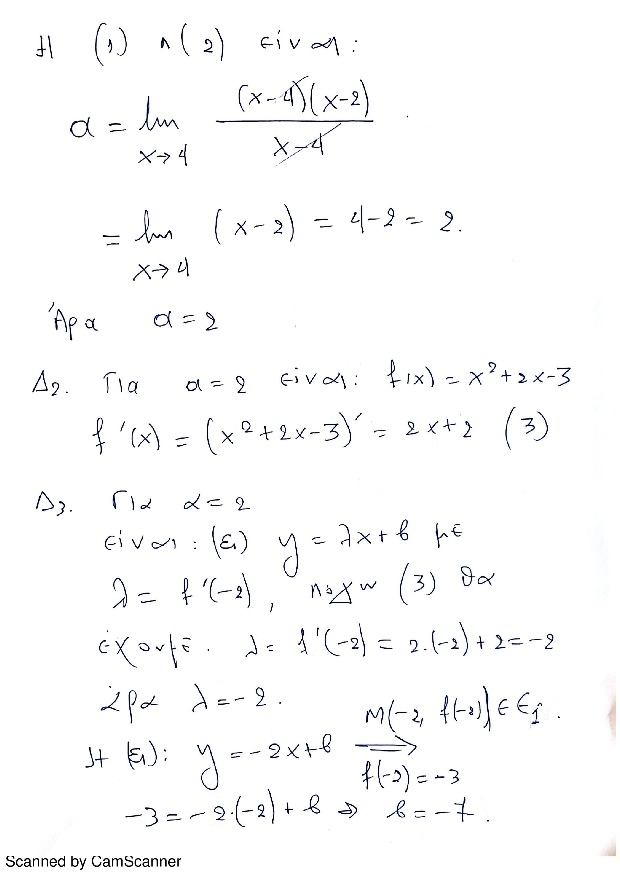 Η (1) λ(2) είναι:
α = lim (x-4)(x-2) / x-4
x→4
= lim (x-2) = 4-2 = 2.
x→4
Άρα α = 2
Δ2. Για α = 2 είναι: f(x) = x²+2x-3
f'(x) = (x²+2x-3)' = 2x+2 (3)
Δ3. Για α = 2
είναι: (ε₁) y = λx+β με
λ = f'(-2), λόγω (3) θα
έχουμε. λ = f'(-2) = 2.(-2)+2 = -2
άρα λ = -2.
M(-2, f(-2)) ∈ ε₁.
Η (ε₁): y = -2x+β ⟹
f(-2) = -3
-3 = -2.(-2)+β ⇒ β = -7.
Scanned by CamScanner